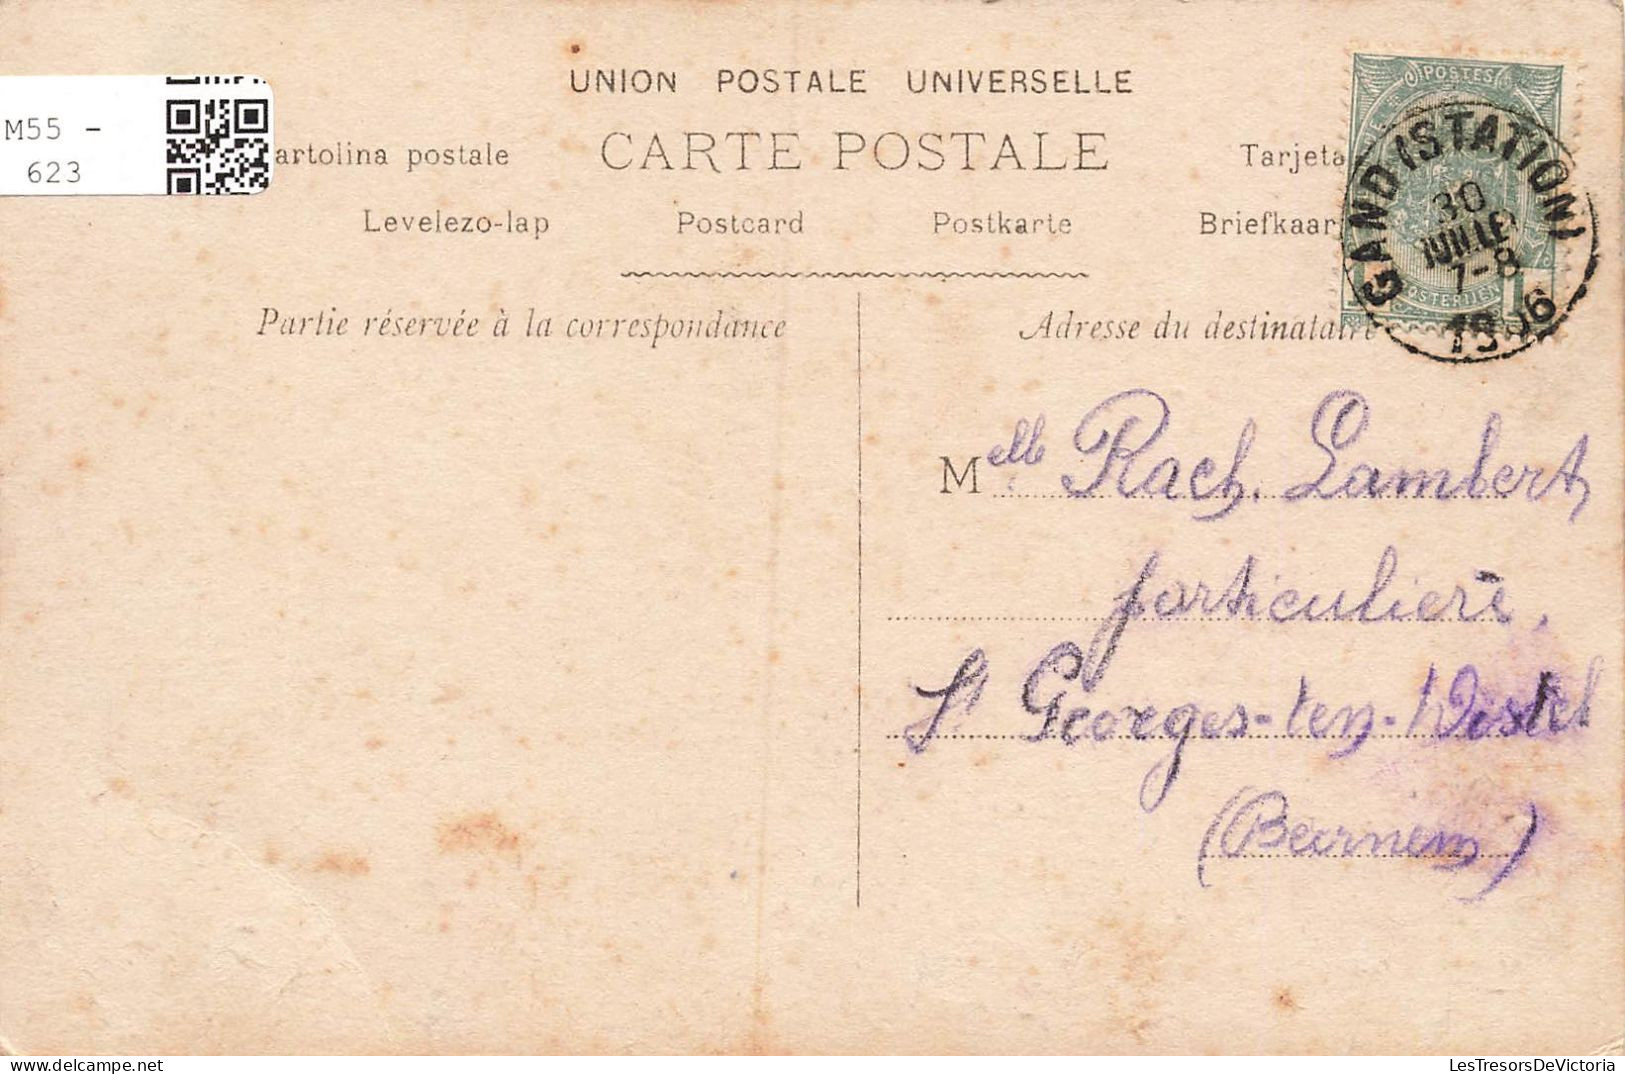 UNION POSTALE UNIVERSELLE
M55 -
623
artolina postale
CARTE POSTALE
Tarjeta
Levelezo-lap
Postcard
Postkarte
Briefkaar
POSTES
GAND (STATION)
30
JUILLE
7-8
1906
OSTERIJEN
1
Partie réservée à la correspondance
Adresse du destinataire
Melle Rach. Lambert
particulière,
St Georges-ten-Distel
(Beernem)
LesTresorsDeVictoria